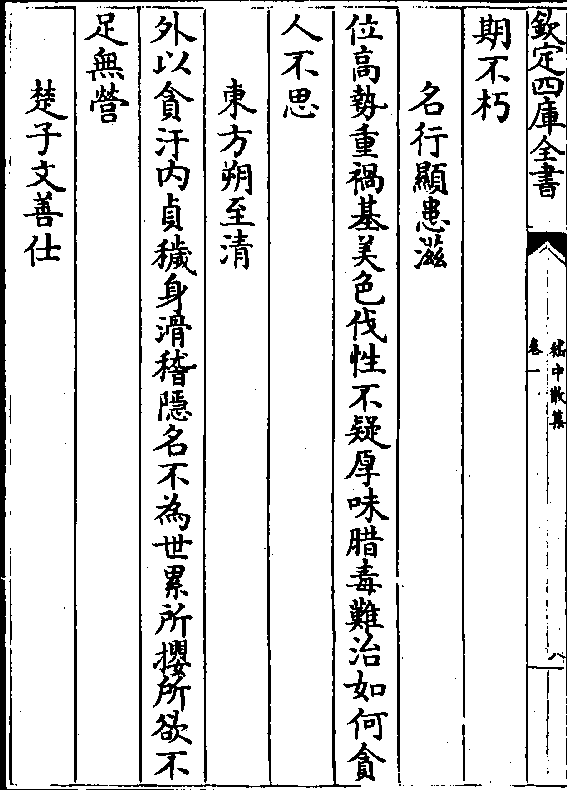 欽定四庫全書
嵇中散集
卷一
八
期不朽
名行顯患滋
位高勢重禍基美色伐性不疑厚味腊毒難治如何貪
人不思
東方朔至清
外以貪汙内貞穢身滑稽隱名不為世累所攖所欲不
足無營
楚子文善仕